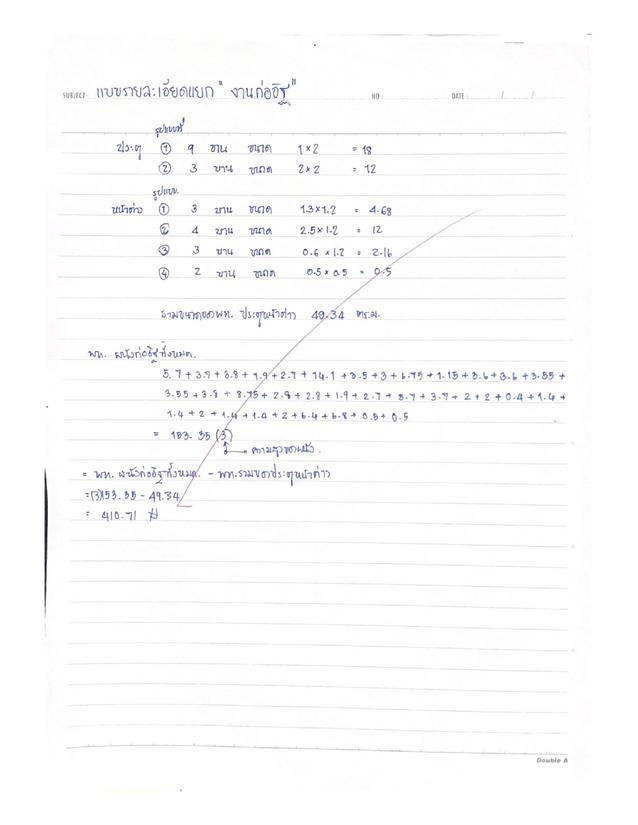 SUBJECT: แบบรายละเอียดแยก "งานก่ออิฐ" NO: DATE: / /
รูปแบบที่
ประตู ① 9 บาน ขนาด 1×2 = 18
② 3 บาน ขนาด 2×2 = 12
รูปแบบ.
หน้าต่าง ① 3 บาน ขนาด 1.3×1.2 = 4.68
② 4 บาน ขนาด 2.5×1.2 = 12
③ 3 บาน ขนาด 0.6×1.2 = 2.16
④ 2 บาน ขนาด 0.5×0.5 = 0.5
รวมขนาดของพท. ประตูหน้าต่าง 49.34 ตร.ม.
พท. ผนังก่ออิฐทั้งหมด.
5.7 + 3.9 + 3.8 + 1.9 + 2.7 + 14.1 + 3.5 + 3 + 6.75 + 1.15 + 3.6 + 3.6 + 3.55 +
3.55 + 3.8 + 8.75 + 2.8 + 2.8 + 1.9 + 2.7 + 5.7 + 3.7 + 2 + 2 + 0.4 + 1.4 +
1.4 + 2 + 1.4 + 1.4 + 2 + 6.4 + 6.8 + 0.5 + 0.5
= 153.35 (3)
ความสูงของผนัง.
= พท. ผนังก่ออิฐทั้งหมด. - พท.รวมของประตูหน้าต่าง
= (3)153.35 - 49.34
= 410.71 #
Double A